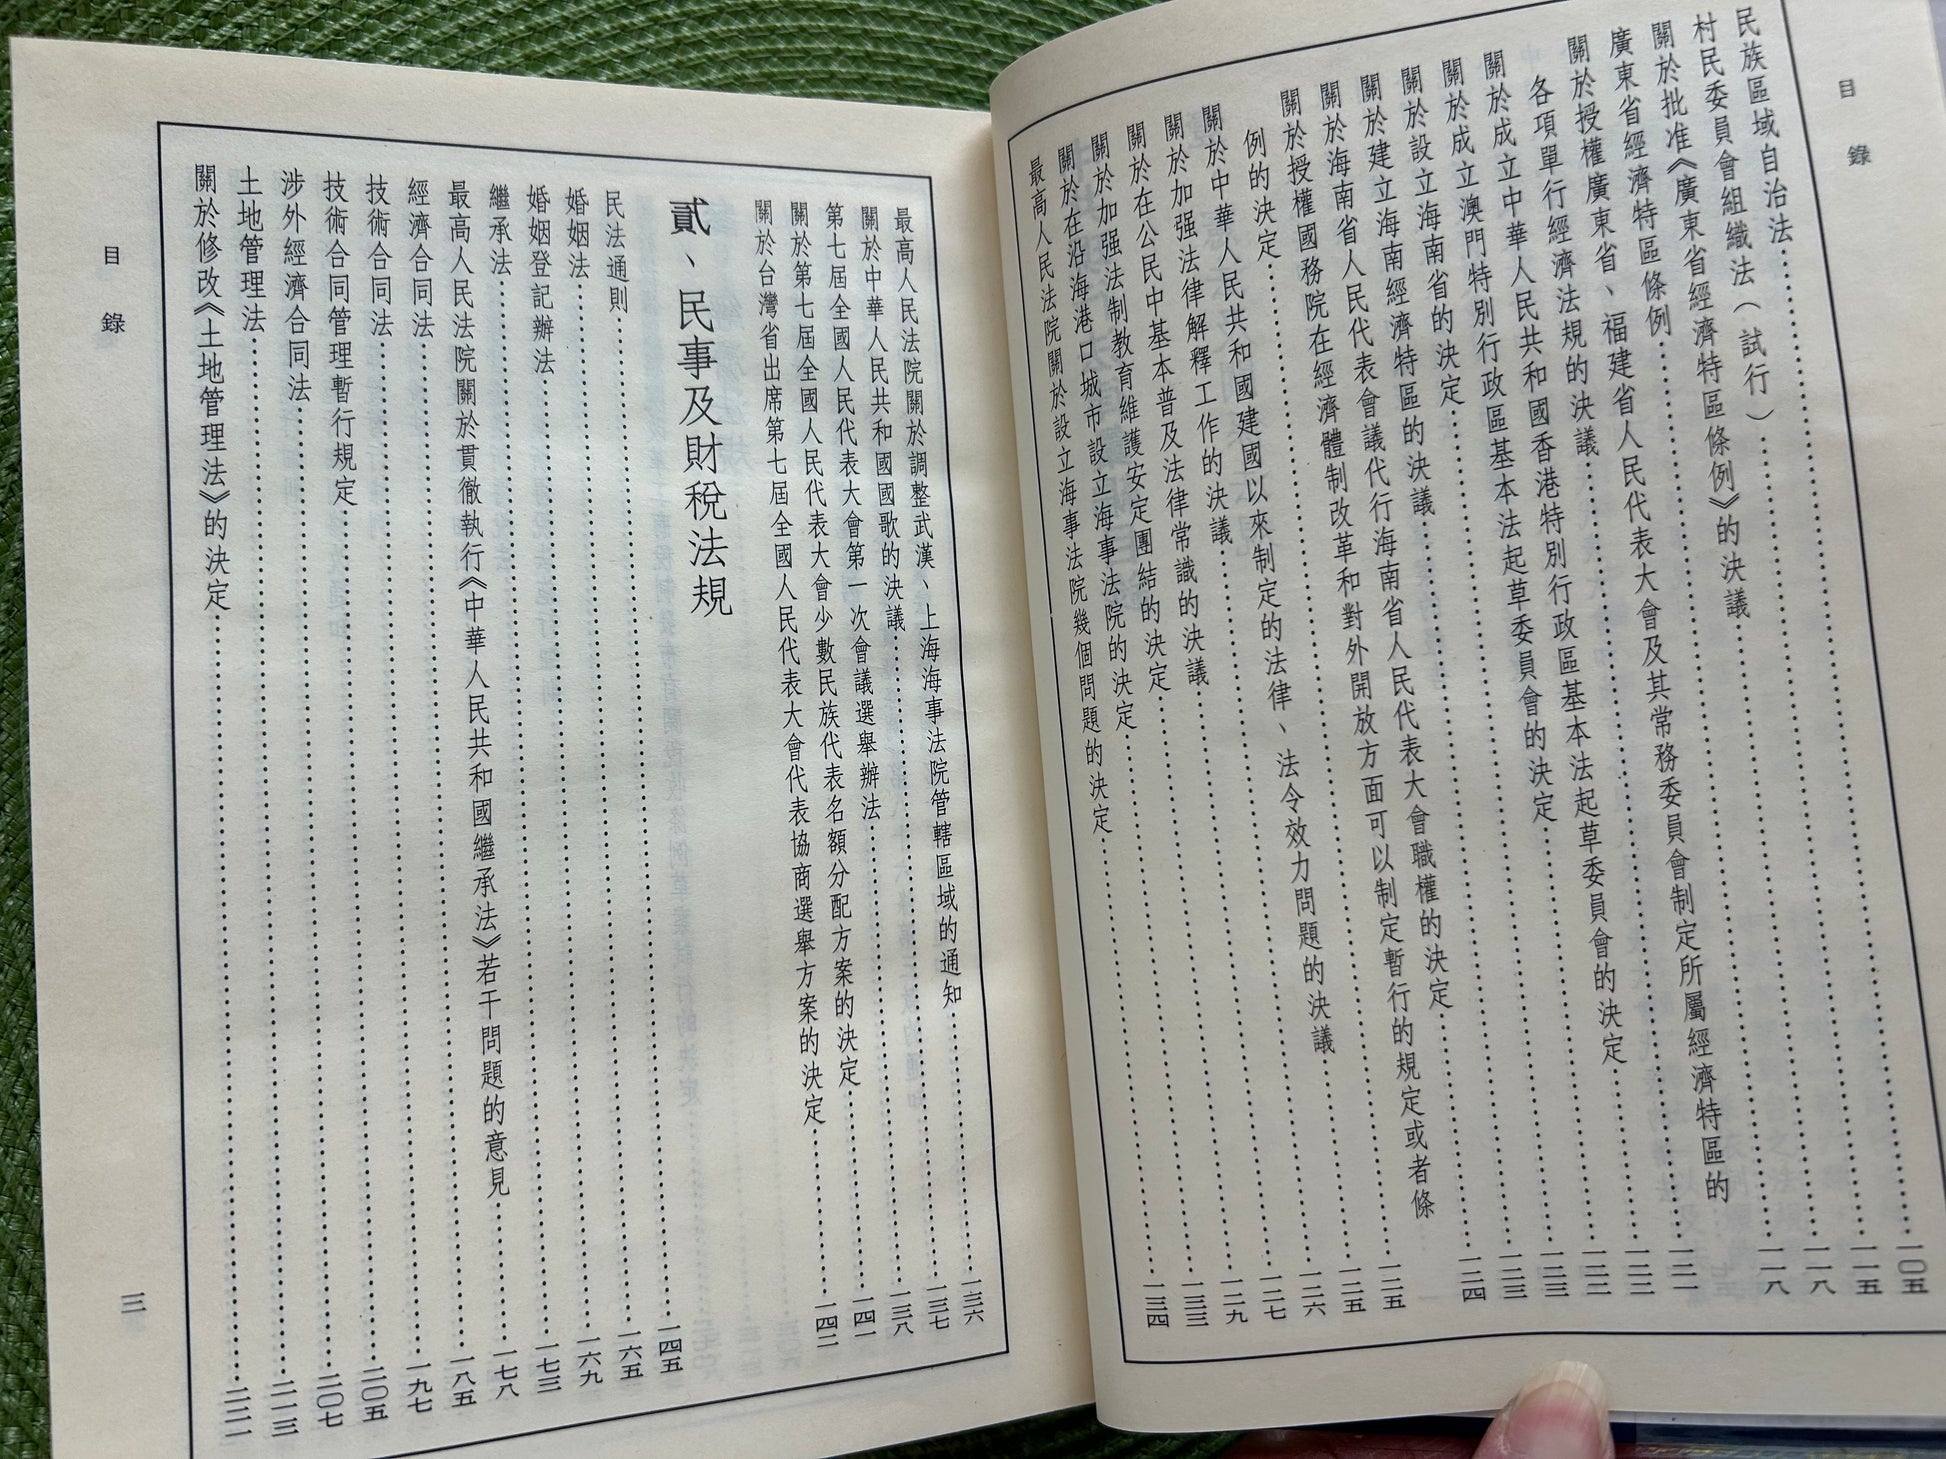 目錄
民族區域自治法……一〇五
村民委員會組織法（試行）……一一五
關於批准《廣東省經濟特區條例》的決議……一一八
廣東省經濟特區條例……一一八
關於授權廣東省、福建省人民代表大會及其常務委員會制定所屬經濟特區的
各項單行經濟法規的決議……一二一
關於成立中華人民共和國香港特別行政區基本法起草委員會的決定……一二二
關於成立澳門特別行政區基本法起草委員會的決定……一二二
關於設立海南省的決定……一二三
關於建立海南經濟特區的決議……一二三
關於海南省人民代表會議代行海南省人民代表大會職權的決定……一二四
關於授權國務院在經濟體制改革和對外開放方面可以制定暫行的規定或者條
例的決定……一二五
關於中華人民共和國建國以來制定的法律、法令效力問題的決議……一二五
關於加强法律解釋工作的決議……一二六
關於在公民中基本普及法律常識的決議……一二七
關於加强法制教育維護安定團結的決定……一二九
關於在沿海港口城市設立海事法院的決定……一三三
最高人民法院關於設立海事法院幾個問題的決定……一三四
最高人民法院關於調整武漢、上海海事法院管轄區域的通知……一三六
關於中華人民共和國國歌的決議……一三七
第七屆全國人民代表大會第一次會議選舉辦法……一三八
關於第七屆全國人民代表大會少數民族代表名額分配方案的決定……一四一
關於台灣省出席第七屆全國人民代表大會代表協商選舉方案的決定……一四二
貳、民事及財稅法規
民法通則……一四五
婚姻法……一六五
婚姻登記辦法……一六九
繼承法……一七三
最高人民法院關於貫徹執行《中華人民共和國繼承法》若干問題的意見……一七八
經濟合同法……一八五
技術合同法……一九七
技術合同管理暫行規定……二〇五
涉外經濟合同法……二〇七
土地管理法……二一三
關於修改《土地管理法》的決定……二二一
目錄
三